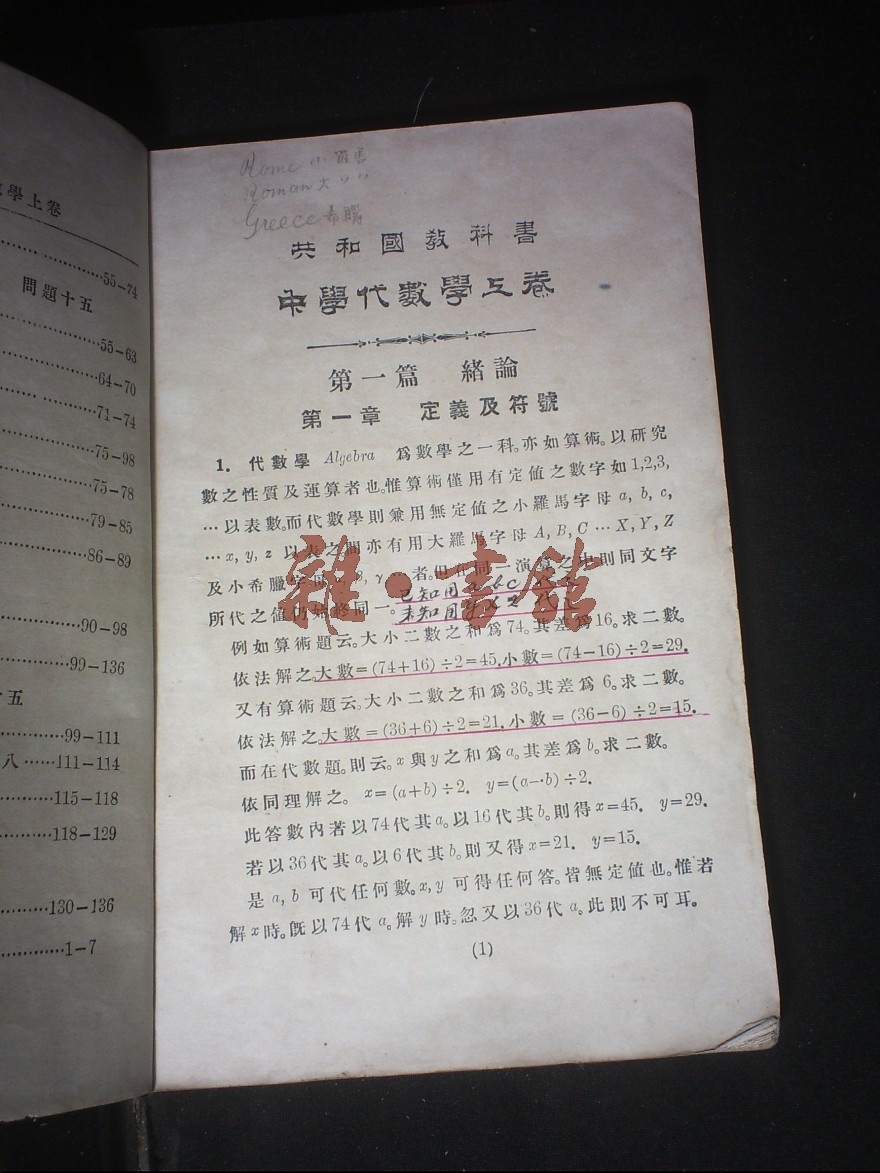 學上卷
55-74
問題十五
55-63
64-70
71-74
75-98
75-78
79-85
86-89
90-98
99-136
十五
99-111
八……111-114
115-118
118-129
130-136
1-7
Rome 小
Roman 大 〃 〃
Greece 希臘
共和國教科書
中學代數學上卷
第一篇 緒論
第一章 定義及符號
1. 代數學 Algebra 爲數學之一科。亦如算術。以研究
數之性質及運算者也。惟算術僅用有定值之數字如1,2,3,
…以表數。而代數學則兼用無定值之小羅馬字母 a, b, c,
… x, y, z 以表之。間亦有用大羅馬字母 A, B, C … X, Y, Z
及小希臘字母 β, γ … 者。但在同一演算之中則同文字
所代之值仍始終同一。
已知用 a b c
未知用 x y z 代
例如算術題云。大小二數之和爲74。其差爲16。求二數。
依法解之。大數=(74+16)÷2=45.小數=(74-16)÷2=29.
又有算術題云。大小二數之和爲36。其差爲 6。求二數。
依法解之。大數=(36+6)÷2=21.小數=(36-6)÷2=15.
而在代數題。則云。x與y之和爲a。其差爲b。求二數。
依同理解之。 x=(a+b)÷2. y=(a-b)÷2.
此答數內若以74代其a。以16代其b。則得x=45. y=29.
若以36代其a。以6代其b。則又得x=21. y=15.
是 a, b 可代任何數。x, y 可得任何答。皆無定值也。惟若
解x時。既以74代 a。解 y 時。忽又以36代 a。此則不可耳。
(1)
雜·書館